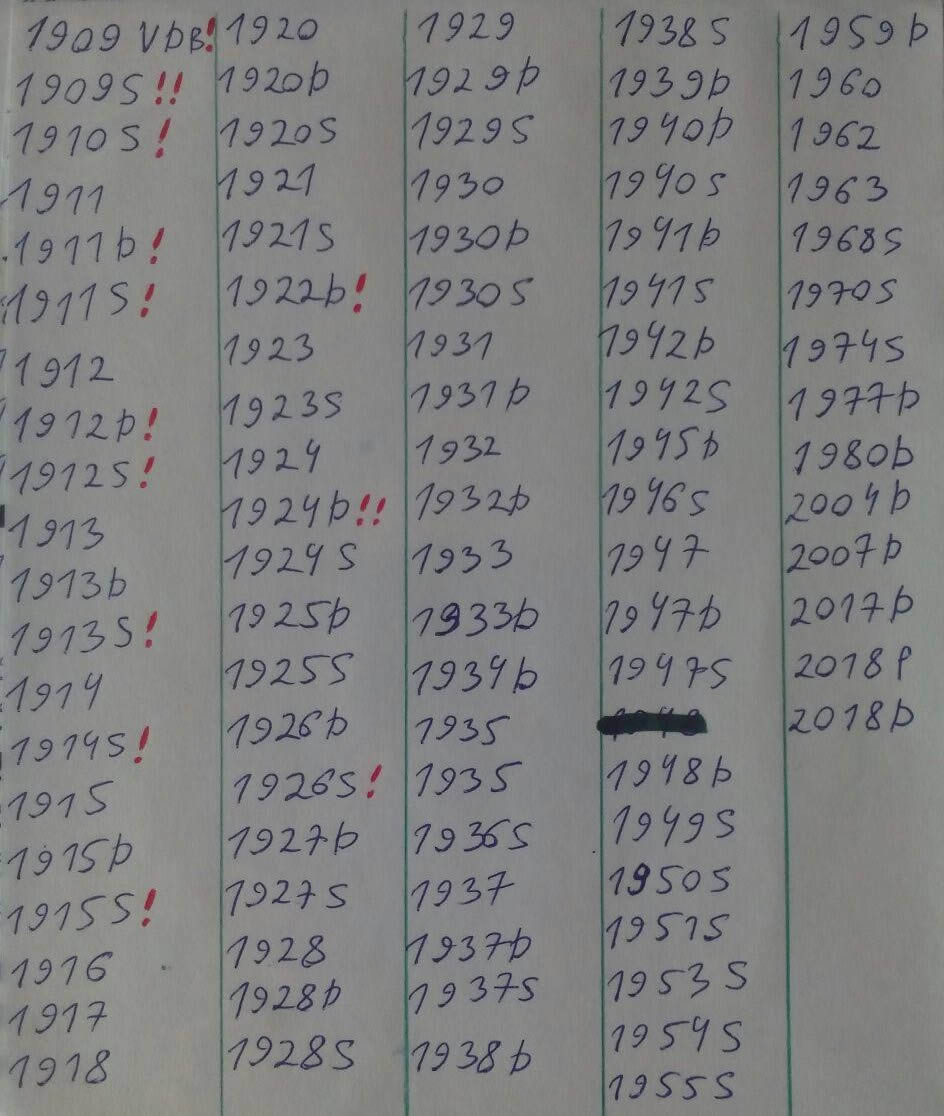 1909 VDB!
1909S!!
1910S!
1911
1911D!
1911S!
1912
1912D!
1912S!
1913
1913D
1913S!
1914
1914S!
1915
1915D
1915S!
1916
1917
1918
1920
1920D
1920S
1921
1921S
1922D!
1923
1923S
1924
1924D!!
1924S
1925D
1925S
1926D
1926S!
1927D
1927S
1928
1928D
1928S
1929
1929D
1929S
1930
1930D
1930S
1931
1931D
1932
1932D
1933
1933D
1934D
1935
1935
1936S
1937
1937D
1937S
1938D
1938S
1939D
1940D
1940S
1941D
1941S
1942D
1942S
1945D
1946S
1947
1947D
1947S
1948D
1949S
1950S
1951S
1953S
1954S
1955S
1959D
1960
1962
1963
1968S
1970S
1974S
1977D
1980D
2004D
2007D
2017D
2018P
2018D